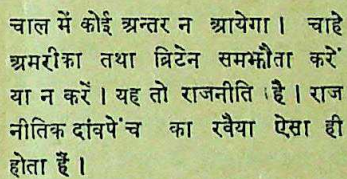 चाल में कोई अन्तर न आयेगा। चाहे
अमरीका तथा ब्रिटेन समझौता करें
या न करें। यह तो राजनीति है। राज
नीतिक दांवपेंच का रवैया ऐसा ही
होता हैं।